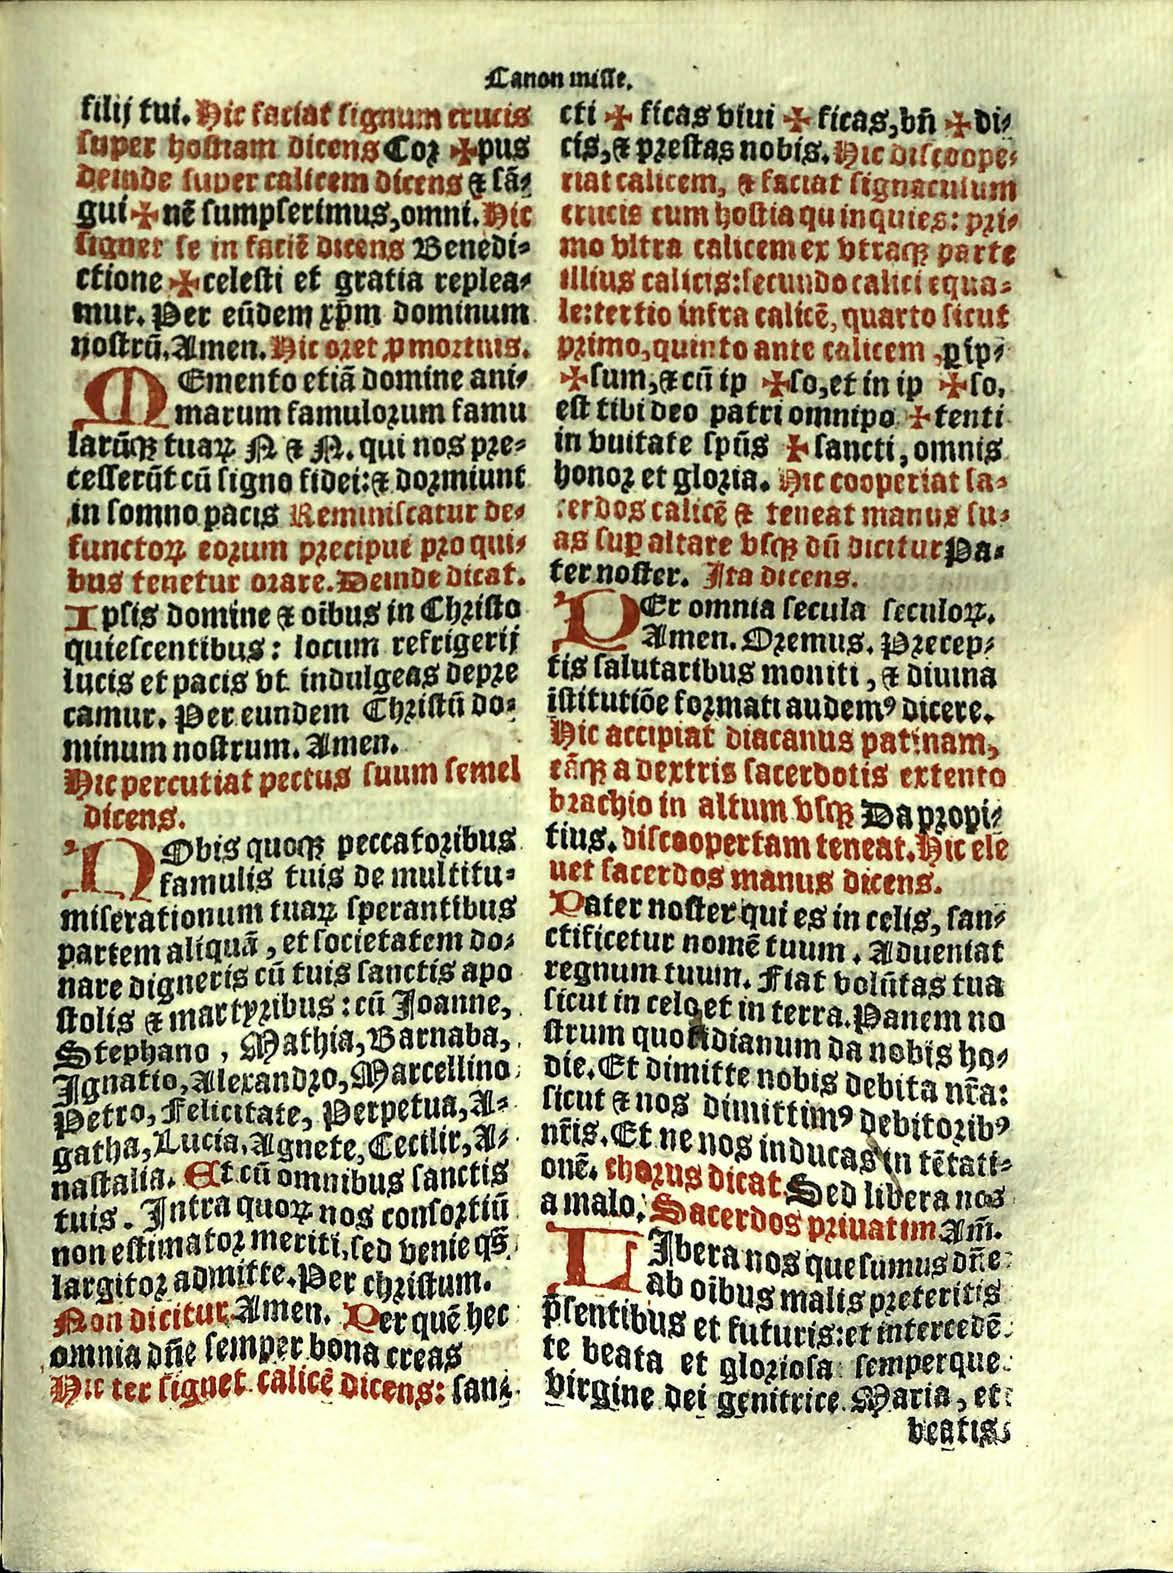 Canon misse.
filij tui. Hic faciat signum crucis
super hostiam dicens Cor ✠ pus
deinde super calicem dicens & sã-
gui ✠ nẽ sumpserimus, omni. Hic
signet se in faciẽ dicens Benedi-
ctione ✠ celesti et gratia replea-
mur. Per eũdem xp̃m dominum
nostrũ. Amen. Hic oret ꝓ mortuis.
MEmento etiã domine ani-
marum famulorum famu
larũqꝫ tuaꝝ N & N. qui nos pre-
cesserũt cũ signo fidei: & dormiunt
in somno pacis Reminiscatur de-
functoꝝ eorum precipue pro qui-
bus tenetur orare. Deinde dicat.
Ipsis domine & oĩbus in Christo
quiescentibus: locum refrigerij
lucis et pacis vt indulgeas depre
camur. Per eundem Christũ do-
minum nostrum. Amen.
Hic percutiat pectus suum semel
dicens.
NObis quoqꝫ peccatoribus
famulis tuis de multitu-
miserationum tuaꝝ sperantibus
partem aliquã, et societatem do-
nare digneris cũ tuis sanctis apo
stolis & martyribus: cũ Joanne,
Stephano, Mathia, Barnaba,
Ignatio, Alexandro, Marcellino
Petro, Felicitate, Perpetua, A-
gatha, Lucia, Agnete, Cecilie, A-
nastalia. Et cũ omnibus sanctis
tuis. Intra quoꝝ nos consortiũ
non estimator meriti, sed venie qs̃,
largitor admitte. Per christum.
Non dicitur Amen. Per quẽ hec
omnia dñe semper bona creas
Hic ter signet calicẽ dicens: san-
cti ✠ ficas viui ✠ ficas, bñ ✠ di-
cis, & prestas nobis. Hic discoope-
riat calicem, & faciat signaculum
crucis cum hostia quinquies: pri-
mo vltra calicem ex vtraqꝫ parte
illius calicis: secundo calici equa-
le: tertio infra calicẽ, quarto sicut
primo, quinto ante calicem, ꝑ ip-
✠ sum, & cũ ip ✠ so, et in ip ✠ so,
est tibi deo patri omnipo ✠ tenti
in vuitate spũs ✠ sancti, omnis
honor et gloria. Hic cooperiat sa-
cerdos calicẽ & teneat manus su-
as suꝑ altare vsqꝫ dũ dicitur Pa-
ter noster. Ita dicens.
PEr omnia secula seculoꝝ.
Amen. Oremus. Precep-
tis salutaribus moniti, & diuina
ĩstitutiõe formati audemꝰ dicere.
Hic accipiat diacanus patinam,
eãqꝫ a dextris sacerdotis extento
brachio in altum vsqꝫ Da propi-
tius. discoopertam teneat. Hic ele
uet sacerdos manus dicens.
Pater noster qui es in celis, san-
ctificetur nomẽ tuum. Adueniat
regnum tuum. Fiat volũtas tua
sicut in celo et in terra. Panem no
strum quotidianum da nobis ho-
die. Et dimitte nobis debita nr̃a:
sicut & nos dimittimꝰ debitoribꝰ
nr̃is. Et ne nos inducas in tẽtati-
onẽ. chorus dicat. Sed libera nos
a malo. Sacerdos priuatim Am̃.
LIbera nos quesumus dñe
ab oĩbus malis preteritis
p̃sentibus et futuris: et intercedẽ-
te beata et gloriosa semperque
virgine dei genitrice Maria, et
beatis